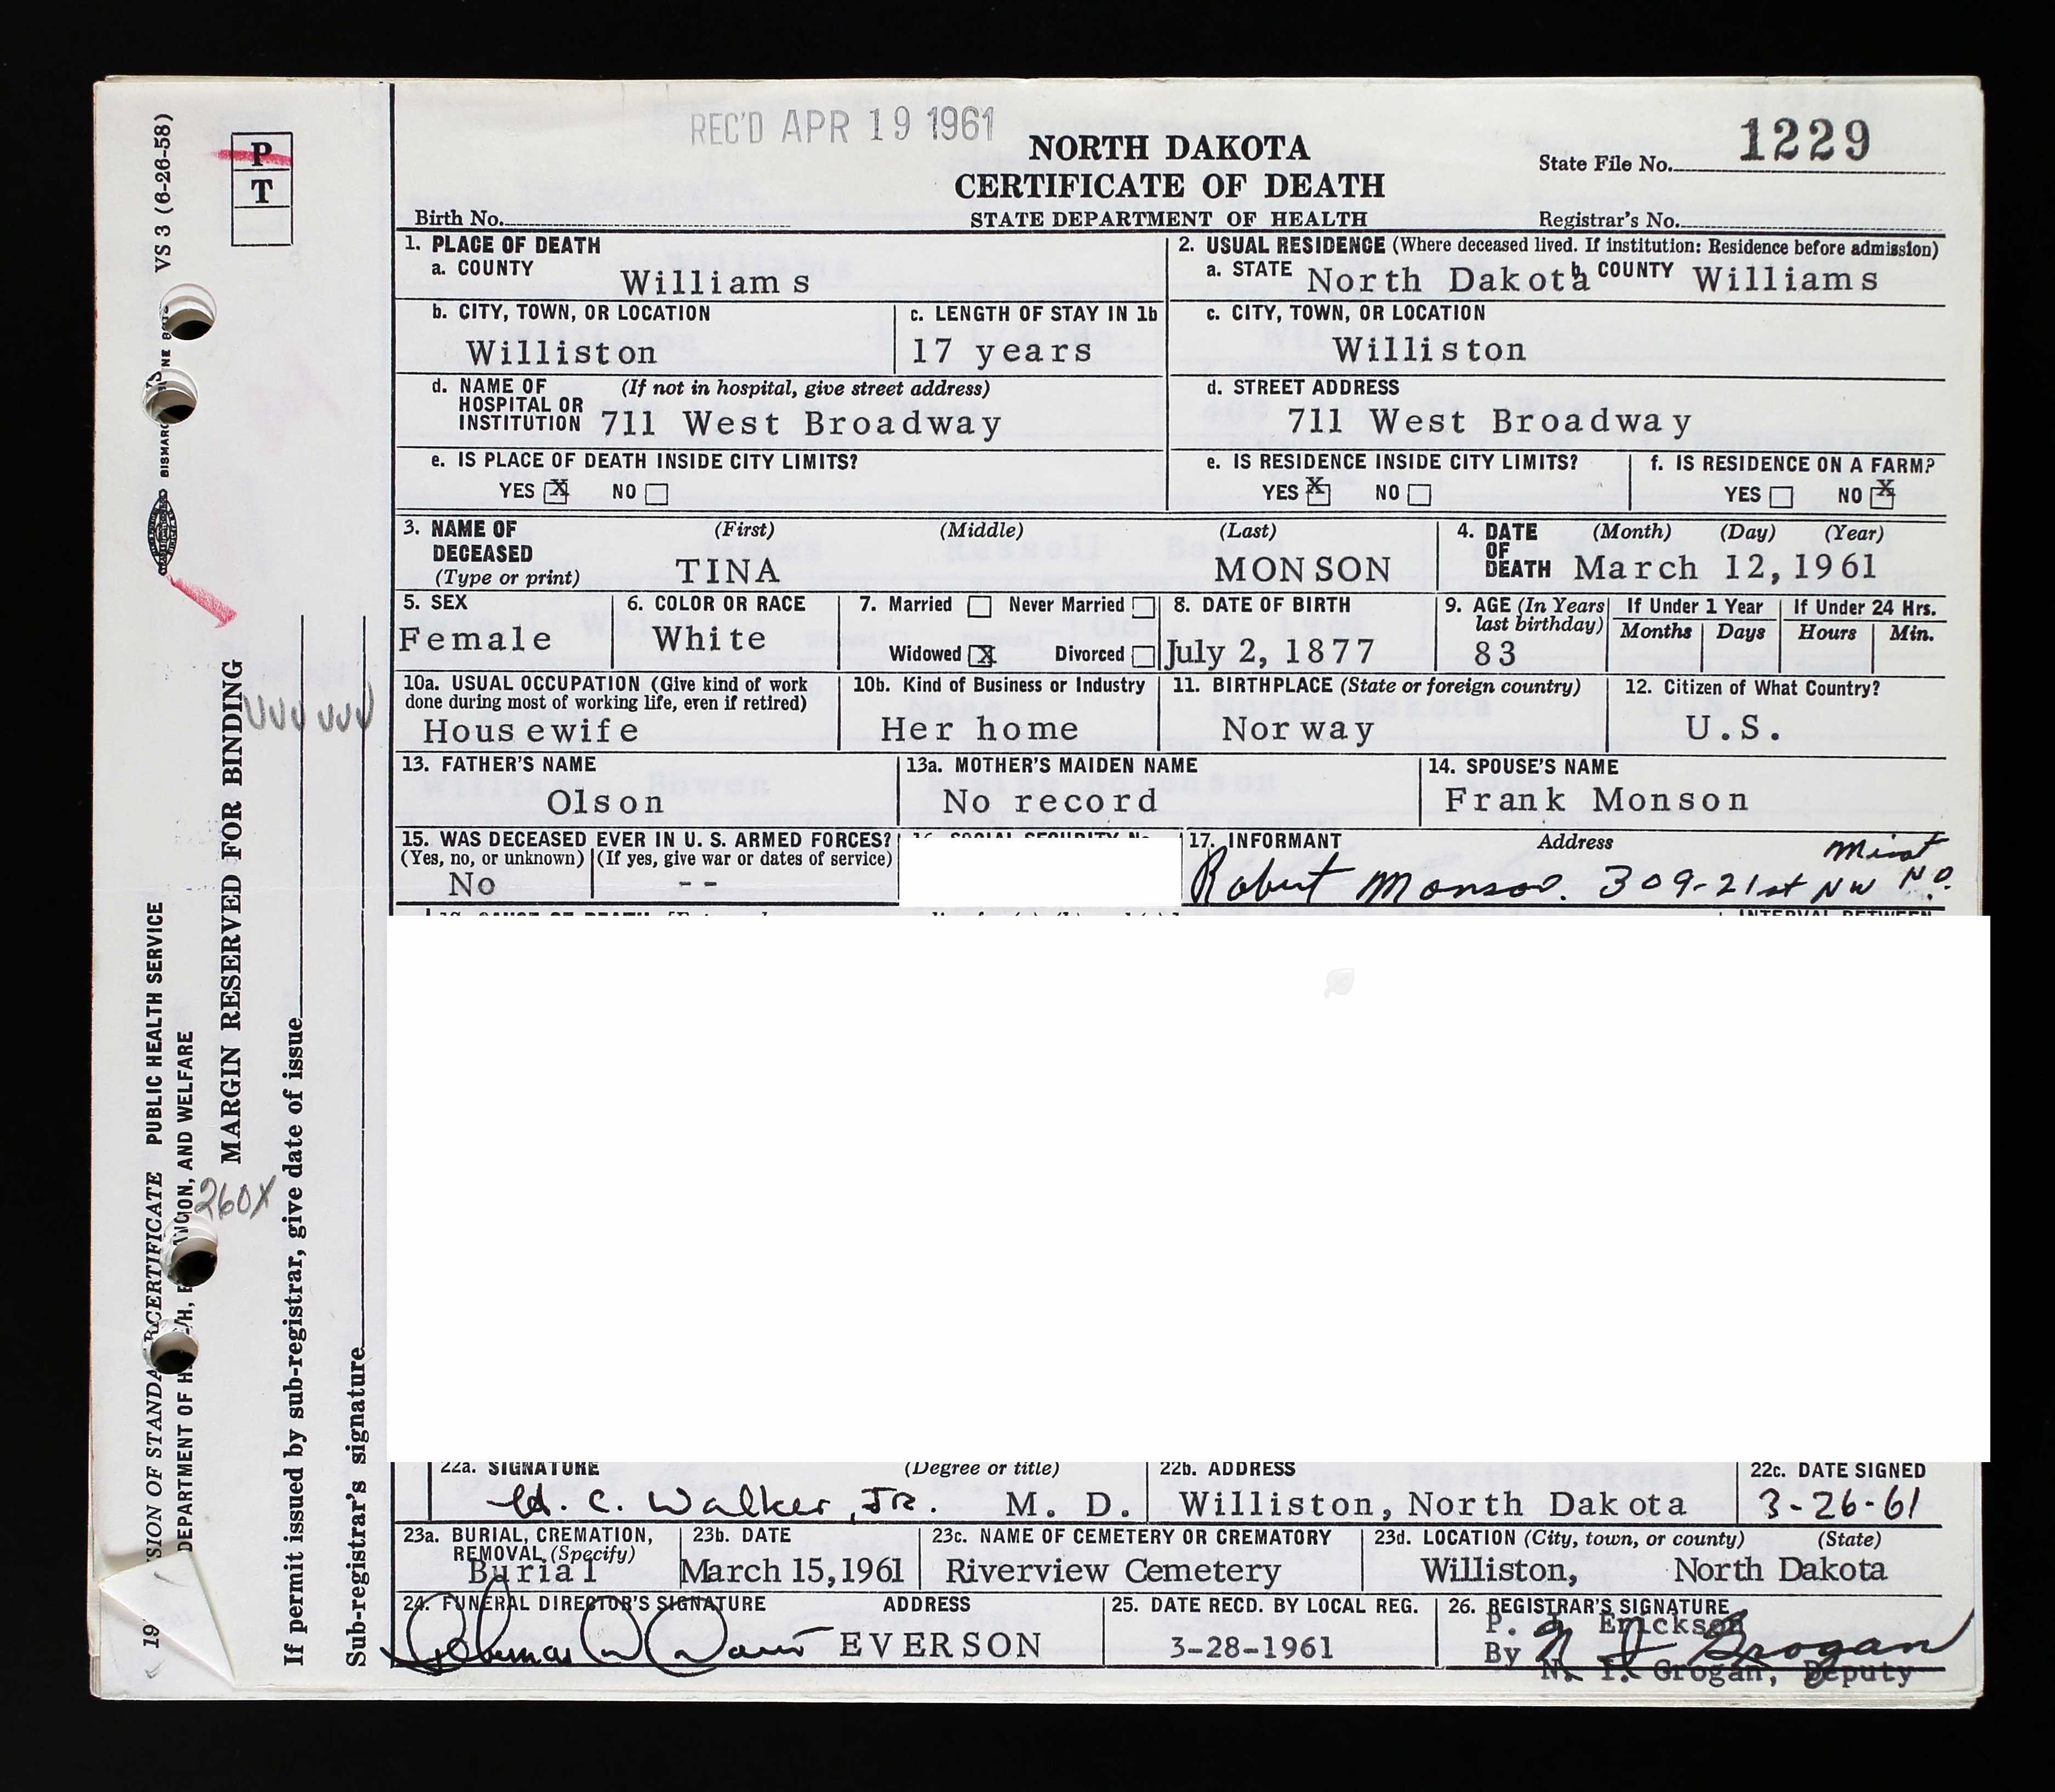 REC'D APR 19 1961
NORTH DAKOTA
CERTIFICATE OF DEATH
STATE DEPARTMENT OF HEALTH
State File No. 1229
Birth No.
Registrar's No.
1. PLACE OF DEATH
a. COUNTY
Williams
2. USUAL RESIDENCE (Where deceased lived. If institution: Residence before admission)
a. STATE North Dakota b. COUNTY Williams
b. CITY, TOWN, OR LOCATION
Williston
c. LENGTH OF STAY IN 1b
17 years
c. CITY, TOWN, OR LOCATION
Williston
d. NAME OF (If not in hospital, give street address)
HOSPITAL OR
INSTITUTION 711 West Broadway
d. STREET ADDRESS
711 West Broadway
e. IS PLACE OF DEATH INSIDE CITY LIMITS?
YES X NO
e. IS RESIDENCE INSIDE CITY LIMITS?
YES X NO
f. IS RESIDENCE ON A FARM?
YES NO X
3. NAME OF DECEASED (Type or print)
(First) (Middle) (Last)
TINA MONSON
4. DATE OF DEATH (Month) (Day) (Year)
March 12, 1961
5. SEX
Female
6. COLOR OR RACE
White
7. Married Never Married
Widowed X Divorced
8. DATE OF BIRTH
July 2, 1877
9. AGE (In Years last birthday)
83
If Under 1 Year
Months Days
If Under 24 Hrs.
Hours Min.
10a. USUAL OCCUPATION (Give kind of work
done during most of working life, even if retired)
Housewife
10b. Kind of Business or Industry
Her home
11. BIRTHPLACE (State or foreign country)
Norway
12. Citizen of What Country?
U.S.
13. FATHER'S NAME
Olson
13a. MOTHER'S MAIDEN NAME
No record
14. SPOUSE'S NAME
Frank Monson
15. WAS DECEASED EVER IN U. S. ARMED FORCES?
(Yes, no, or unknown) (If yes, give war or dates of service)
No --
17. INFORMANT Address
Robert Monson. 309-21st NW Minot ND.
22a. SIGNATURE (Degree or title)
C. Walker, JR. M. D.
22b. ADDRESS
Williston, North Dakota
22c. DATE SIGNED
3-26-61
23a. BURIAL, CREMATION,
REMOVAL (Specify)
Burial
23b. DATE
March 15, 1961
23c. NAME OF CEMETERY OR CREMATORY
Riverview Cemetery
23d. LOCATION (City, town, or county) (State)
Williston, North Dakota
24. FUNERAL DIRECTOR'S SIGNATURE ADDRESS
EVERSON
25. DATE RECD. BY LOCAL REG.
3-28-1961
26. REGISTRAR'S SIGNATURE
P. Erickson
By N I Grogan
N. I. Grogan, Deputy
VS 3 (6-26-58)
P
T
BISMARC
PUBLIC HEALTH SERVICE
AND WELFARE
MARGIN RESERVED FOR BINDING
260X
If permit issued by sub-registrar, give date of issue
Sub-registrar's signature